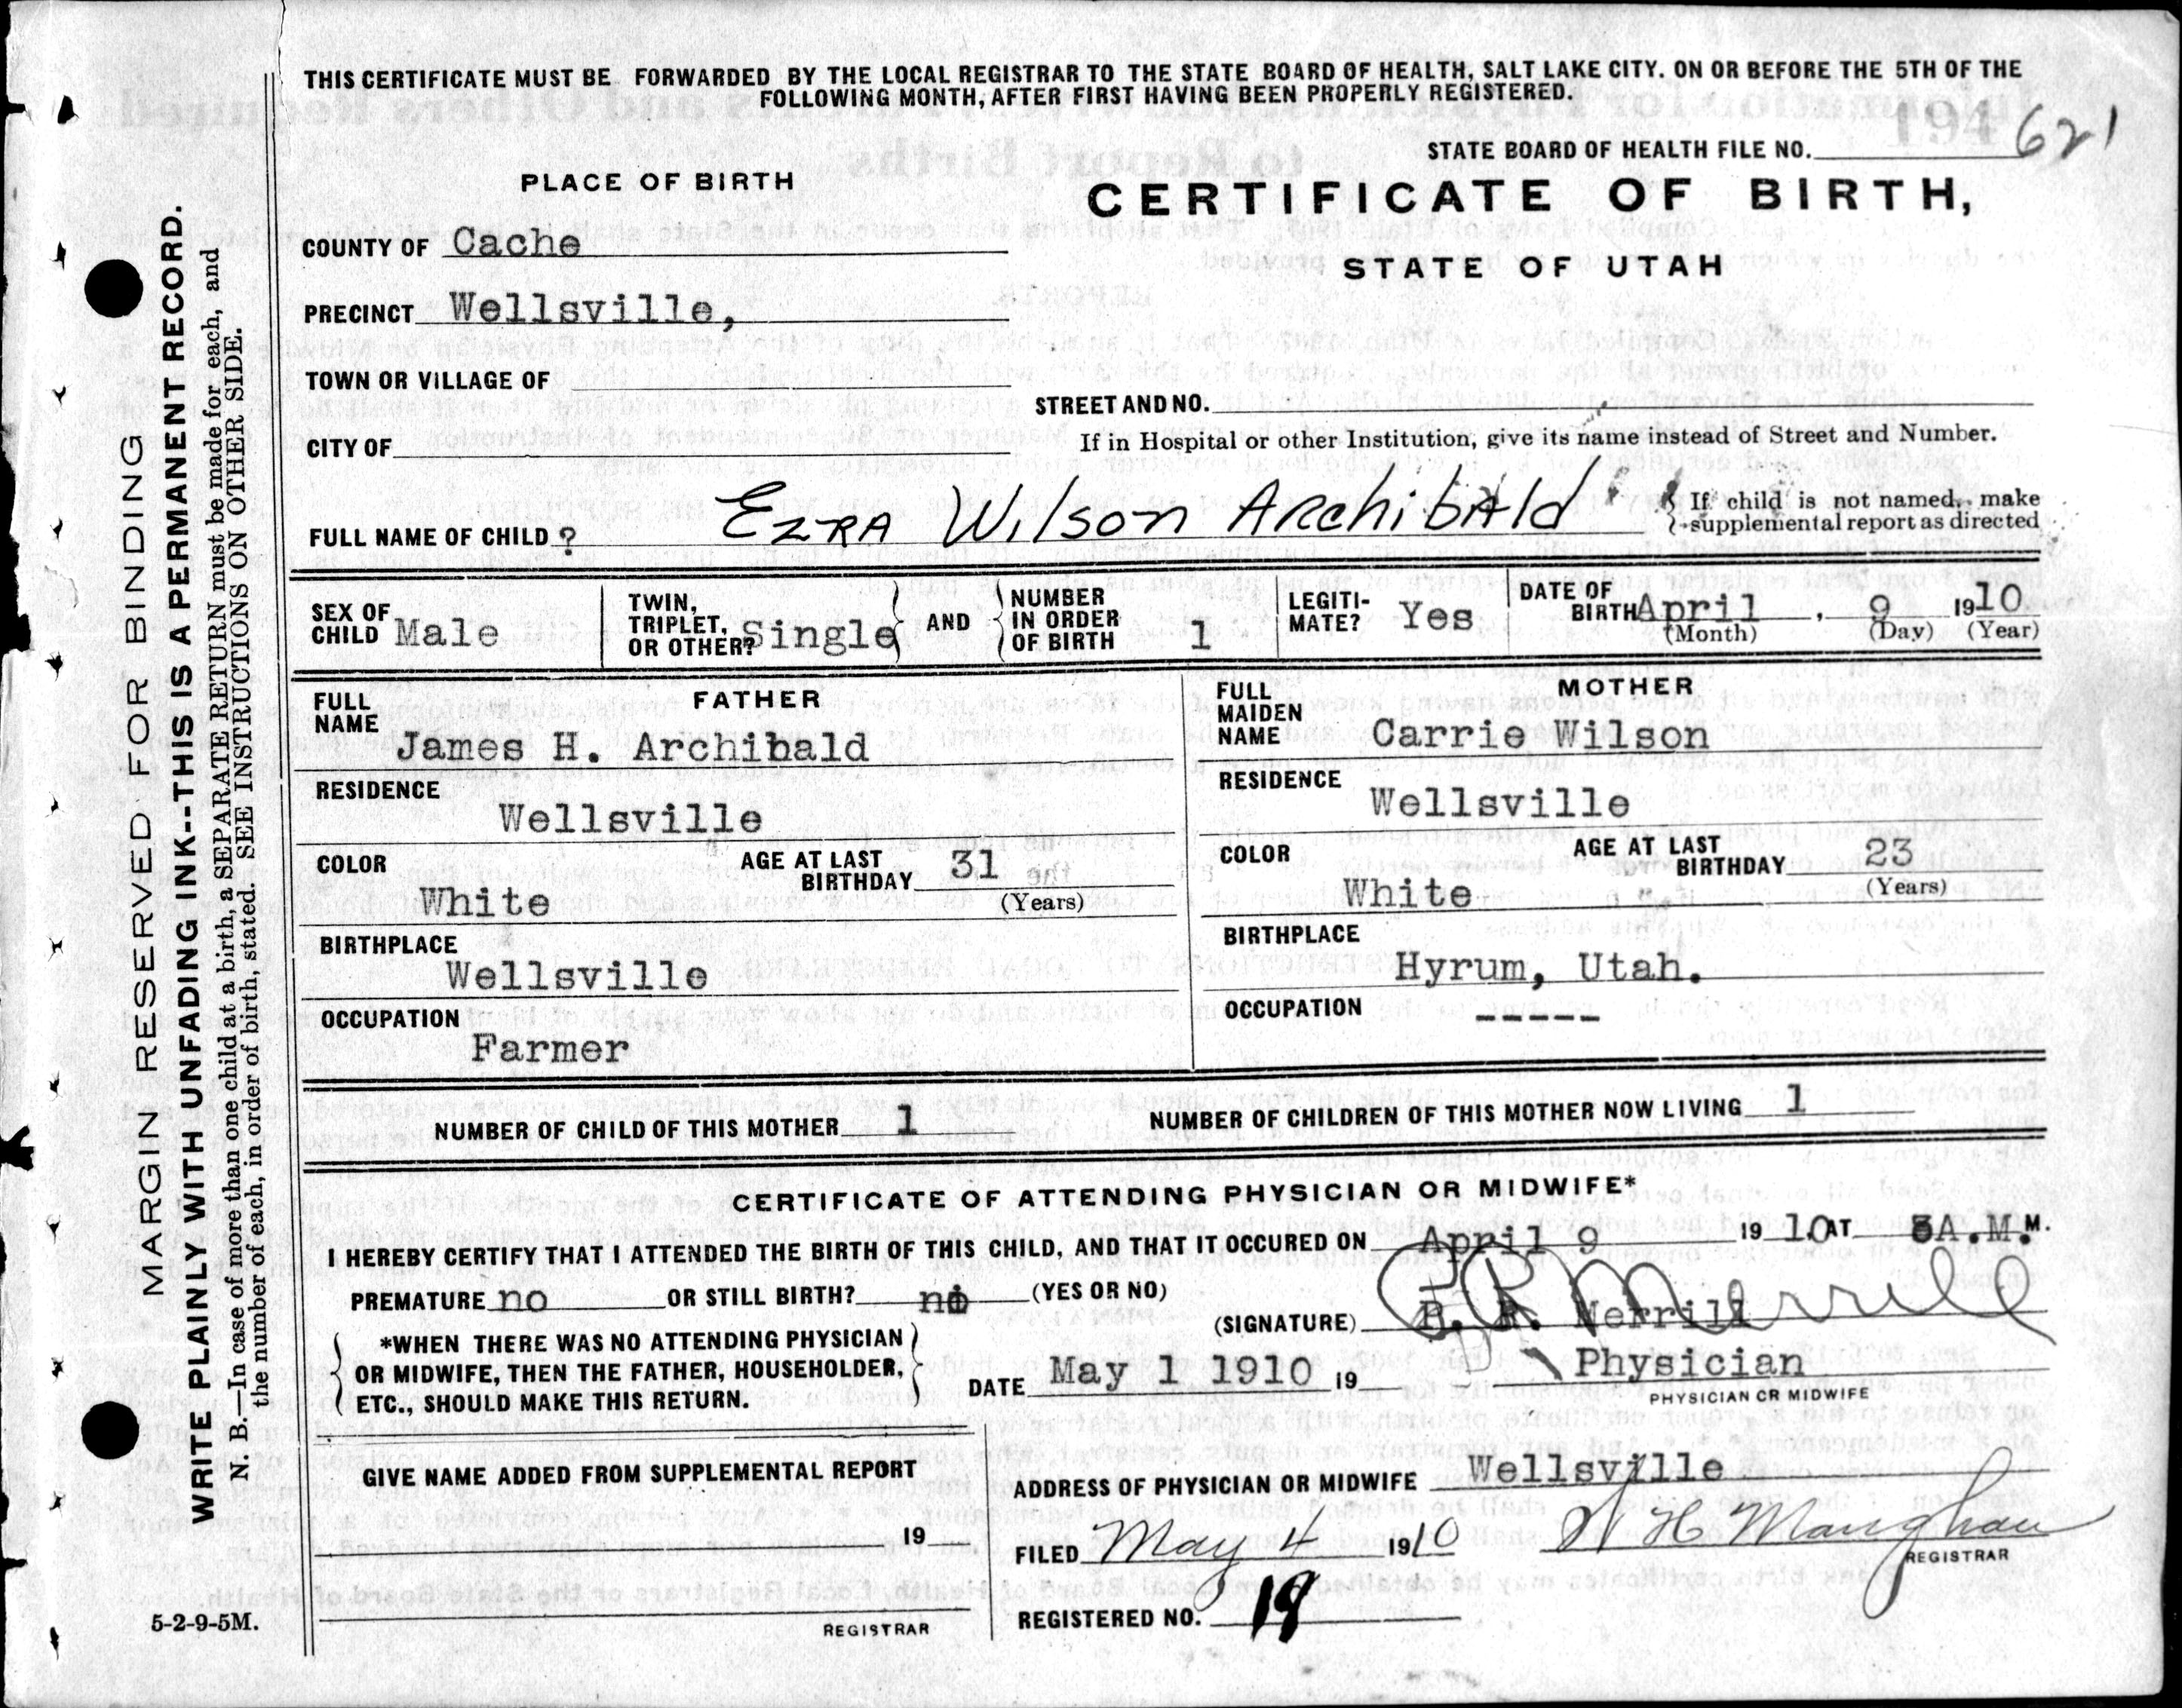 THIS CERTIFICATE MUST BE FORWARDED BY THE LOCAL REGISTRAR TO THE STATE BOARD OF HEALTH, SALT LAKE CITY. ON OR BEFORE THE 5TH OF THE
FOLLOWING MONTH, AFTER FIRST HAVING BEEN PROPERLY REGISTERED.
194 621
STATE BOARD OF HEALTH FILE NO.
PLACE OF BIRTH
CERTIFICATE OF BIRTH,
STATE OF UTAH
COUNTY OF Cache
PRECINCT Wellsville,
TOWN OR VILLAGE OF
STREET AND NO.
CITY OF
If in Hospital or other Institution, give its name instead of Street and Number.
FULL NAME OF CHILD ? Ezra Wilson Archibald
If child is not named, make
supplemental report as directed
SEX OF
CHILD Male
TWIN,
TRIPLET,
OR OTHER? Single
AND
NUMBER
IN ORDER
OF BIRTH 1
LEGITI-
MATE? Yes
DATE OF
BIRTH April, 9 1910
(Month) (Day) (Year)
FATHER
FULL
NAME
James H. Archibald
RESIDENCE
Wellsville
COLOR
White
AGE AT LAST
BIRTHDAY 31
(Years)
BIRTHPLACE
Wellsville
OCCUPATION
Farmer
MOTHER
FULL
MAIDEN
NAME Carrie Wilson
RESIDENCE
Wellsville
COLOR
White
AGE AT LAST
BIRTHDAY 23
(Years)
BIRTHPLACE
Hyrum, Utah.
OCCUPATION -----
NUMBER OF CHILD OF THIS MOTHER 1
NUMBER OF CHILDREN OF THIS MOTHER NOW LIVING 1
CERTIFICATE OF ATTENDING PHYSICIAN OR MIDWIFE*
I HEREBY CERTIFY THAT I ATTENDED THE BIRTH OF THIS CHILD, AND THAT IT OCCURED ON April 9 1910 AT A.M. M.
PREMATURE no OR STILL BIRTH? no (YES OR NO)
(SIGNATURE) Merrill
*WHEN THERE WAS NO ATTENDING PHYSICIAN
OR MIDWIFE, THEN THE FATHER, HOUSEHOLDER,
ETC., SHOULD MAKE THIS RETURN.
DATE May 1 1910 19
Physician
PHYSICIAN OR MIDWIFE
GIVE NAME ADDED FROM SUPPLEMENTAL REPORT
19
REGISTRAR
ADDRESS OF PHYSICIAN OR MIDWIFE Wellsville
FILED May 4 1910
H Maughan
REGISTRAR
REGISTERED NO. 19
5-2-9-5M.
MARGIN RESERVED FOR BINDING
WRITE PLAINLY WITH UNFADING INK--THIS IS A PERMANENT RECORD.
N. B.—In case of more than one child at a birth, a SEPARATE RETURN must be made for each, and
the number of each, in order of birth, stated. SEE INSTRUCTIONS ON OTHER SIDE.